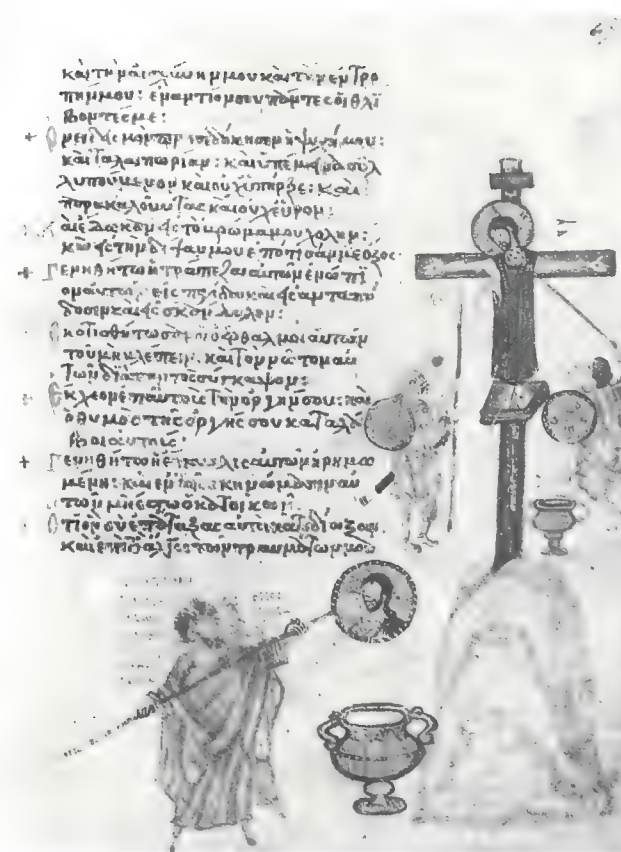 καὶ τὴν αἰσχύνην μου καὶ τὴν ἐντρο
πήν μου: ἐναντίον σου πάντες οἱ θλί
βοντές με:
+ Ὀνειδισμὸν προσεδόκησεν ἡ ψυχή μου:
καὶ ταλαιπωρίαν: καὶ ὑπέμεινα συλ
λυπούμενον καὶ οὐχ ὑπῆρξε: καὶ
παρακαλοῦντας καὶ οὐχ εὗρον:
Καὶ ἔδωκαν εἰς τὸ βρῶμά μου χολήν:
καὶ εἰς τὴν δίψαν μου ἐπότισάν με ὄξος
+ Γενηθήτω ἡ τράπεζα αὐτῶν ἐνώπι
ον αὐτῶν εἰς παγίδα καὶ εἰς ἀνταπό
δοσιν καὶ εἰς σκάνδαλον:
Σκοτισθήτωσαν οἱ ὀφθαλμοὶ αὐτῶν
τοῦ μὴ βλέπειν. καὶ τὸν νῶτον αὐ
τῶν διὰ παντὸς σύγκαμψον:
Ἔκχεον ἐπ' αὐτοὺς τὴν ὀργήν σου: καὶ
ὁ θυμὸς τῆς ὀργῆς σου καταλά
βοι αὐτούς:
+ Γενηθήτω ἡ ἔπαυλις αὐτῶν ἠρημω
μένη: καὶ ἐν τοῖς σκηνώμασιν αὐ
τῶν μὴ ἔστω ὁ κατοικῶν:
Ὅτι ὃν σὺ ἐπάταξας αὐτοὶ κατεδίωξαν
καὶ ἐπὶ τὸ ἄλγος τῶν τραυμάτων μου